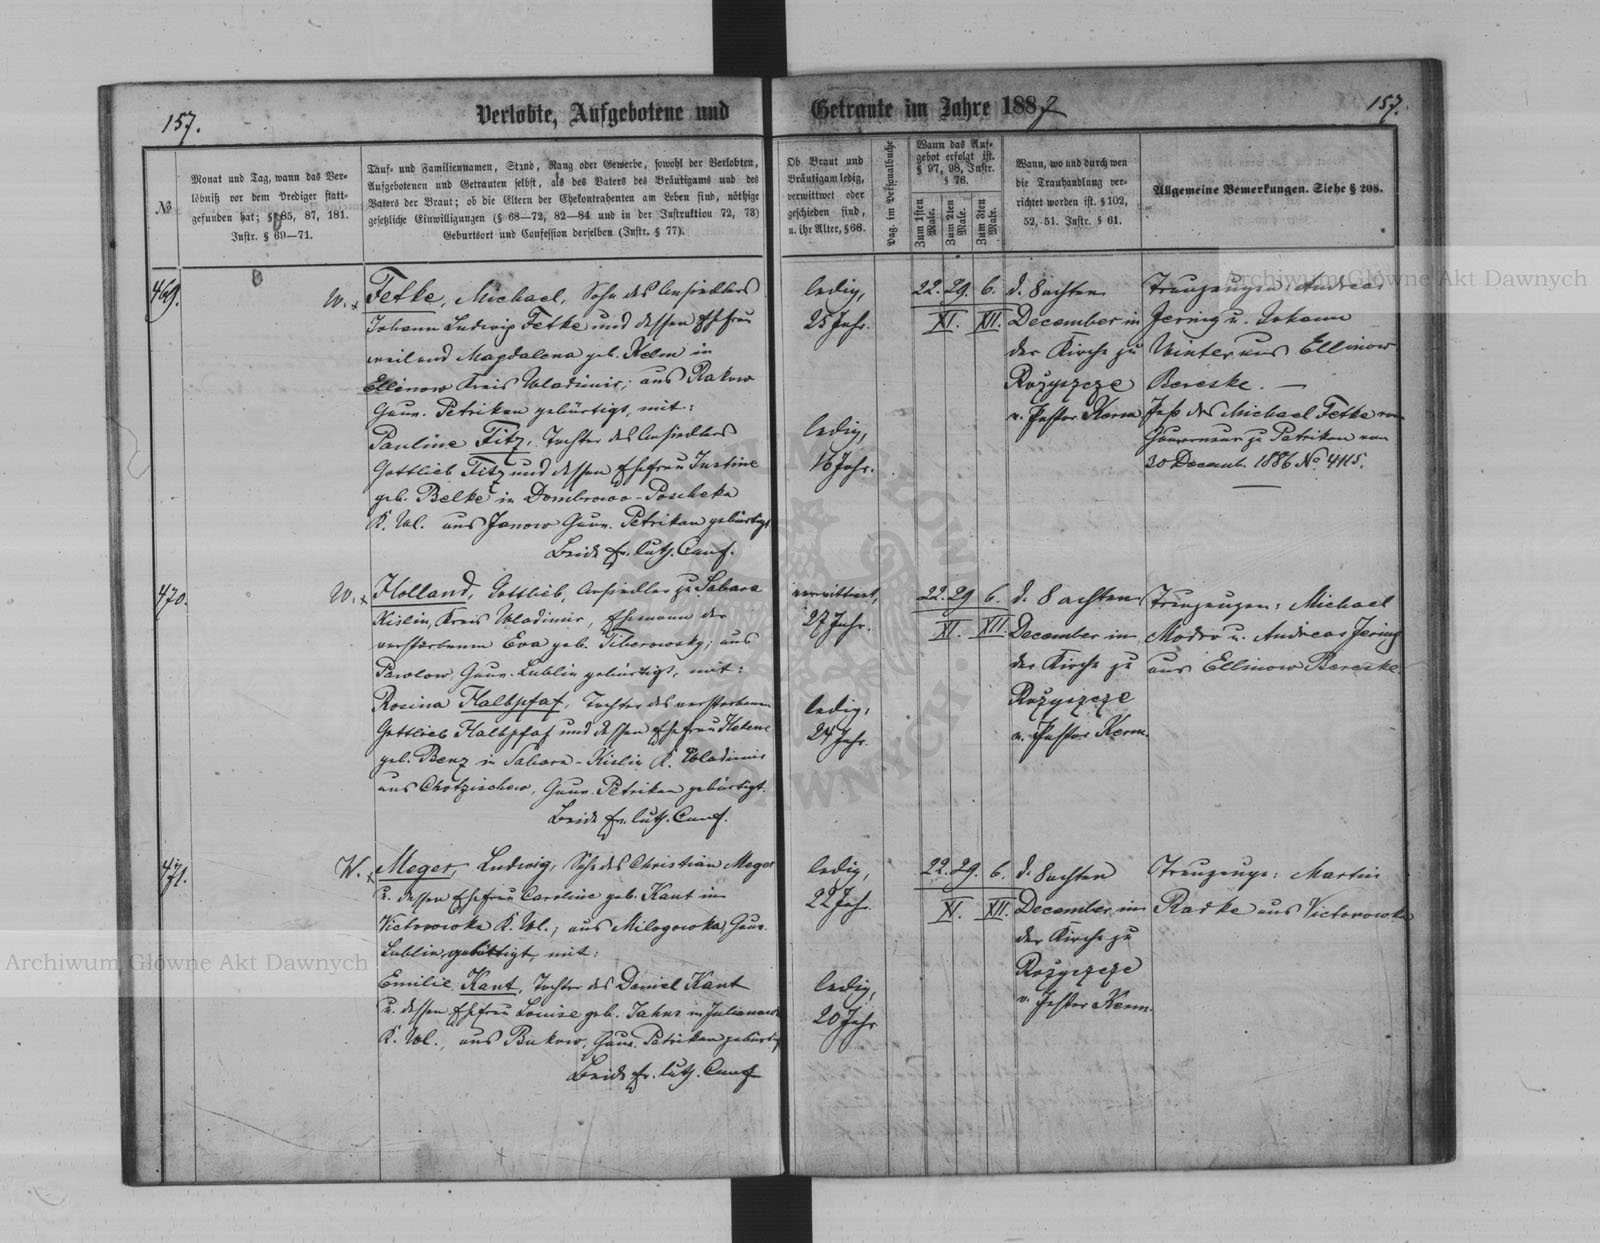 157.
Verlobte, Aufgebotene und
Getraute im Jahre 1887
157.
№
Monat und Tag, wann das Ver-
löbniß vor dem Prediger statt-
gefunden hat; § 85, 87, 181.
Instr. § 69—71.
Tauf- und Familiennamen, Stand, Rang oder Gewerbe, sowohl der Verlobten,
Aufgebotenen und Getrauten selbst, als des Vaters des Bräutigams und des
Vaters der Braut; ob die Eltern der Ehekontrahenten am Leben sind, nöthige
gesetzliche Einwilligungen (§ 68—72, 82—84 und in der Instruktion 72, 73)
Geburtsort und Confession derselben (Instr. § 77).
Ob Braut und
Bräutigam ledig,
verwittwet oder
geschieden sind,
u. ihr Alter, § 66.
Pag. im Personalbuche.
Wann das Auf-
gebot erfolgt ist.
§ 97, 98, Instr.
§ 76.
Zum 1sten
Male.
Zum 2ten
Male.
Zum 3ten
Male.
Wann, wo und durch wen
die Trauhandlung ver-
richtet worden ist. § 102,
52, 51. Instr. § 61.
Allgemeine Bemerkungen. Siehe § 208.
469.
W. x Fetke, Michael, Sohn des Ansiedlers
Johann Ludwig Fetke und dessen Ehefrau
weiland Magdalena geb. Kelm in
Ellinow Kreis Wladimir; aus Rakow
Gouv. Petrikau gebürtigt, mit:
Pauline Fitz, Tochter des Ansiedlers
Gottlieb Fitz und dessen Ehefrau Justine
geb. Belke in Dombrowo-Poscheka
K. Wl. aus Janow Gouv. Petrikau gebürtigt
Beide ev. luth. Conf.
ledig,
25 Jahr.
ledig,
16 Jahr.
22. 29. 6.
XI. XII.
d. 8 achten
December in
der Kirche zu
Rożyszcze
v. Pastor Kerm
Trauzeugen: Andreas
Jering u. Johann
Winter aus Ellinow
Bereske. —
Paß des Michael Fetke vom
Gouverneur zu Petrikau vom
30 Decemb. 1886 No 4115.
470.
W. x Holland, Gottlieb, Ansiedler zu Sabara
Kislin, Kreis Wladimir, Ehemann der
verstorbenen Eva geb. Tiborowsky; aus
Pawlow Gouv. Lublin gebürtigt, mit:
Rosina Halbpfaf, Tochter des verstorbenen
Gottlieb Halbpfaf und dessen Ehefrau Helene
geb. Benz in Sabara-Kislin K. Wladimir
aus Chotzischew, Gouv. Petrikau gebürtigt.
Beide ev. luth. Conf.
verwittwet,
27 Jahr.
ledig,
24 Jahr.
22. 29 6.
XI. XII.
d. 8 achten
December in
der Kirche zu
Rożyszcze
v. Pastor Kerm.
Trauzeugen: Michael
Modro u. Andreas Jering
aus Ellinow Bereske.
471.
W. x Meger, Ludwig, Sohn des Christian Meger
u. dessen Ehefrau Caroline geb. Kant in
Victorowka K. Wl.; aus Milogowka, Gouv.
Lublin, gebürtigt, mit:
Emilie Kant, Tochter des Daniel Kant
u. dessen Ehefrau Louise geb. Jahns in Julianow
K. Wl., aus Bukow, Gouv. Petrikau gebürtig
Beide ev. luth. Conf
ledig,
22 Jahr.
ledig,
20 Jahr
22. 29. 6.
XI. XII.
d. 8 achten
December in
der Kirche zu
Rożyszcze
v. Pastor Kerm.
Trauzeuge: Martin
Radke aus Victorowka
Archiwum Główne Akt Dawnych
Archiwum Główne Akt Dawnych